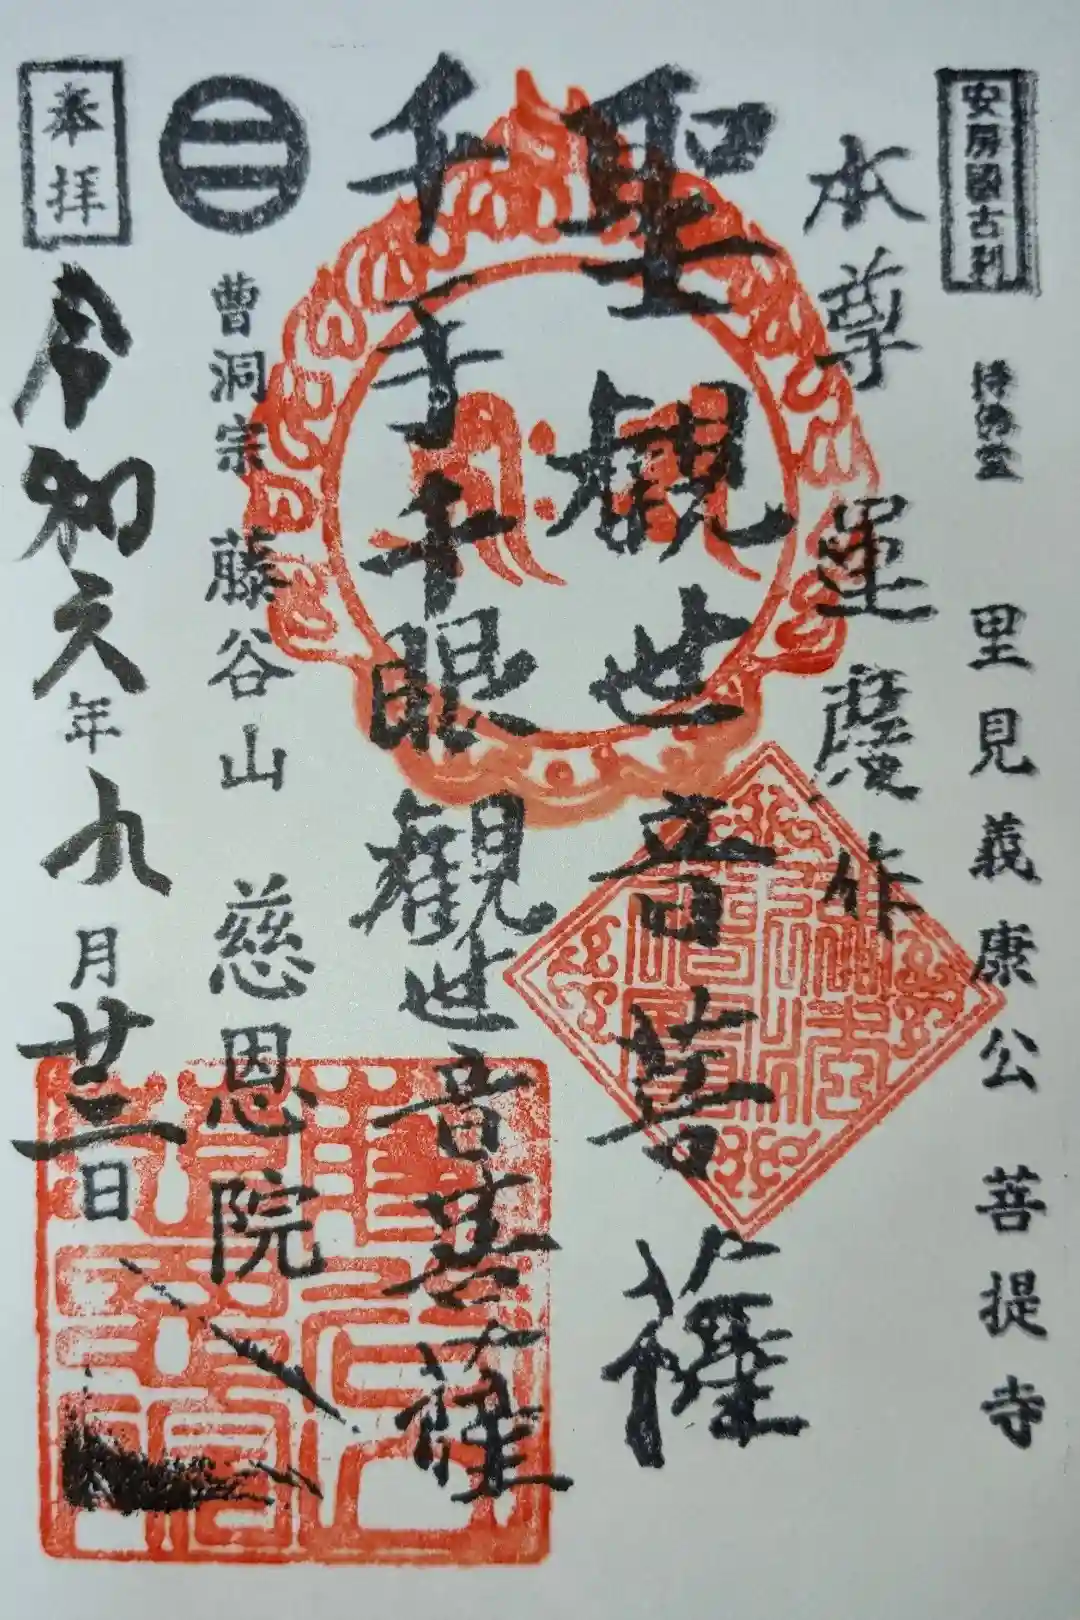 安房國古刹
持佛堂 里見義康公菩提寺
本尊 運慶作
聖観世音菩薩
千手千眼観世音菩薩
曹洞宗 藤谷山 慈恩院
奉拝
令和六年九月廿二日